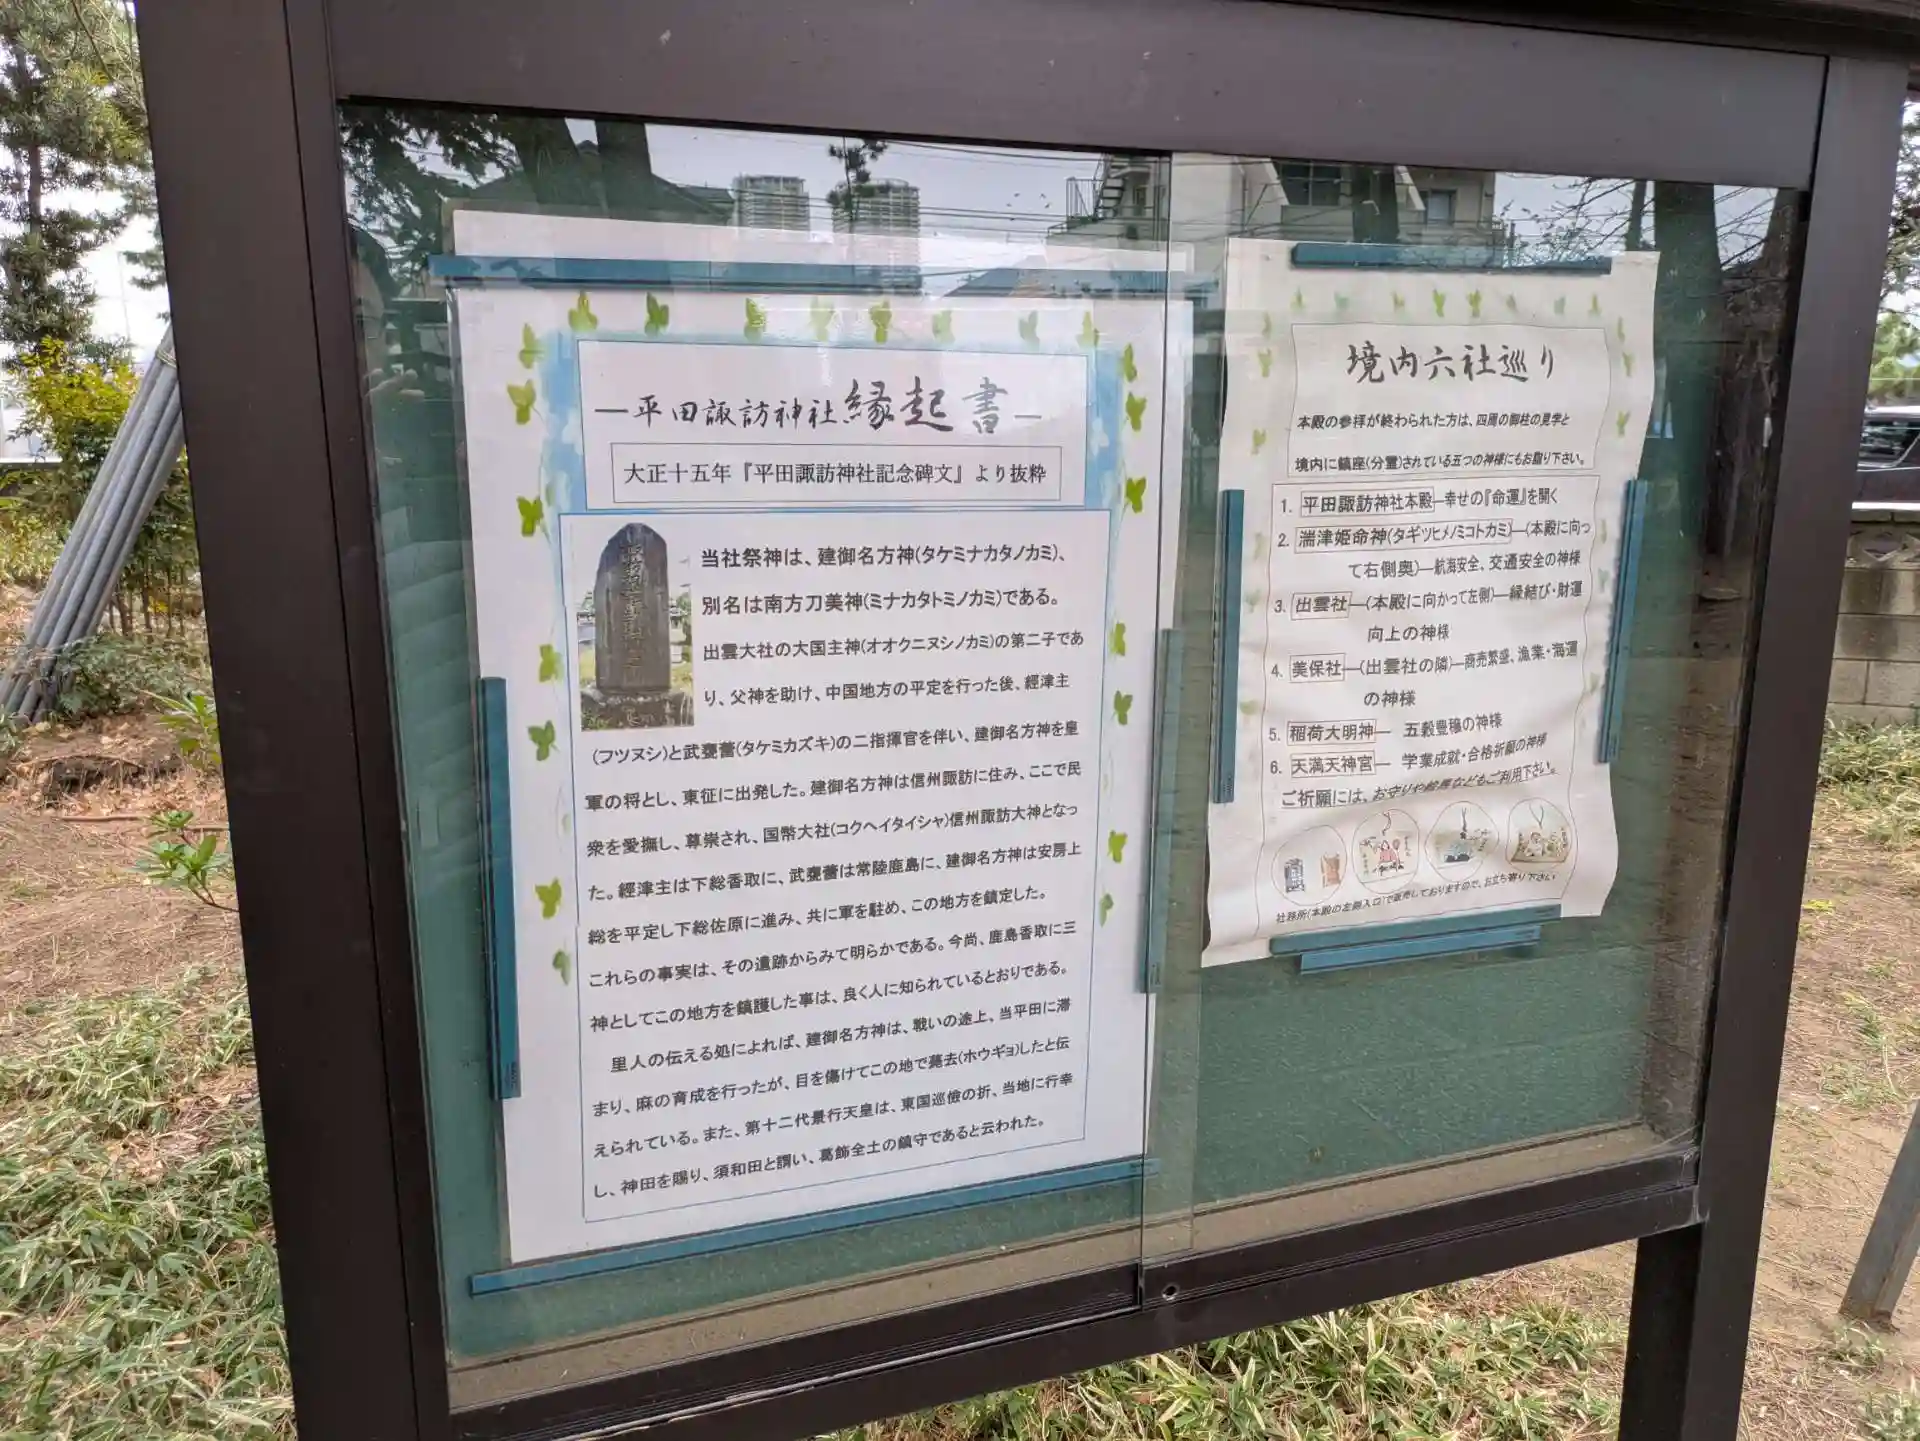 ―平田諏訪神社縁起書―
大正十五年『平田諏訪神社記念碑文』より抜粋
当社祭神は、建御名方神(タケミナカタノカミ)、
別名は南方刀美神(ミナカタトミノカミ)である。
出雲大社の大国主神(オオクニヌシノカミ)の第二子であ
り、父神を助け、中国地方の平定を行った後、經津主
(フツヌシ)と武甕薺(タケミカズキ)の二指揮官を伴い、建御名方神を皇
軍の将とし、東征に出発した。建御名方神は信州諏訪に住み、ここで民
衆を愛撫し、尊崇され、国幣大社(コクヘイタイシャ)信州諏訪大神となっ
た。經津主は下総香取に、武甕薺は常陸鹿島に、建御名方神は安房上
総を平定し下総佐原に進み、共に軍を駐め、この地方を鎮定した。
これらの事実は、その遺跡からみて明らかである。今尚、鹿島香取に三
神としてこの地方を鎮護した事は、良く人に知られているとおりである。
里人の伝える処によれば、建御名方神は、戦いの途上、当平田に滞
まり、麻の育成を行ったが、目を傷けてこの地で薨去(ホウギョ)したと伝
えられている。また、第十二代景行天皇は、東国巡儉の折、当地に行幸
し、神田を賜り、須和田と謂い、葛飾全土の鎮守であると云われた。
境内六社巡り
本殿の参拝が終わられた方は、四周の御柱の見学と
境内に鎮座(分霊)されている五つの神様にもお詣り下さい。
1. 平田諏訪神社本殿―幸せの『命運』を開く
2. 湍津姫命神(タギツヒメノミコトカミ)―(本殿に向っ
て右側奥)―航海安全、交通安全の神様
3. 出雲社―(本殿に向かって左側)―縁結び・財運
向上の神様
4. 美保社―(出雲社の隣)―商売繁盛、漁業・海運
の神様
5. 稲荷大明神― 五穀豊穣の神様
6. 天満天神宮― 学業成就・合格祈願の神様
ご祈願には、お守りや絵馬などもご利用下さい。
社務所(本殿の左側入口)で販売しておりますので、お立ち寄り下さい